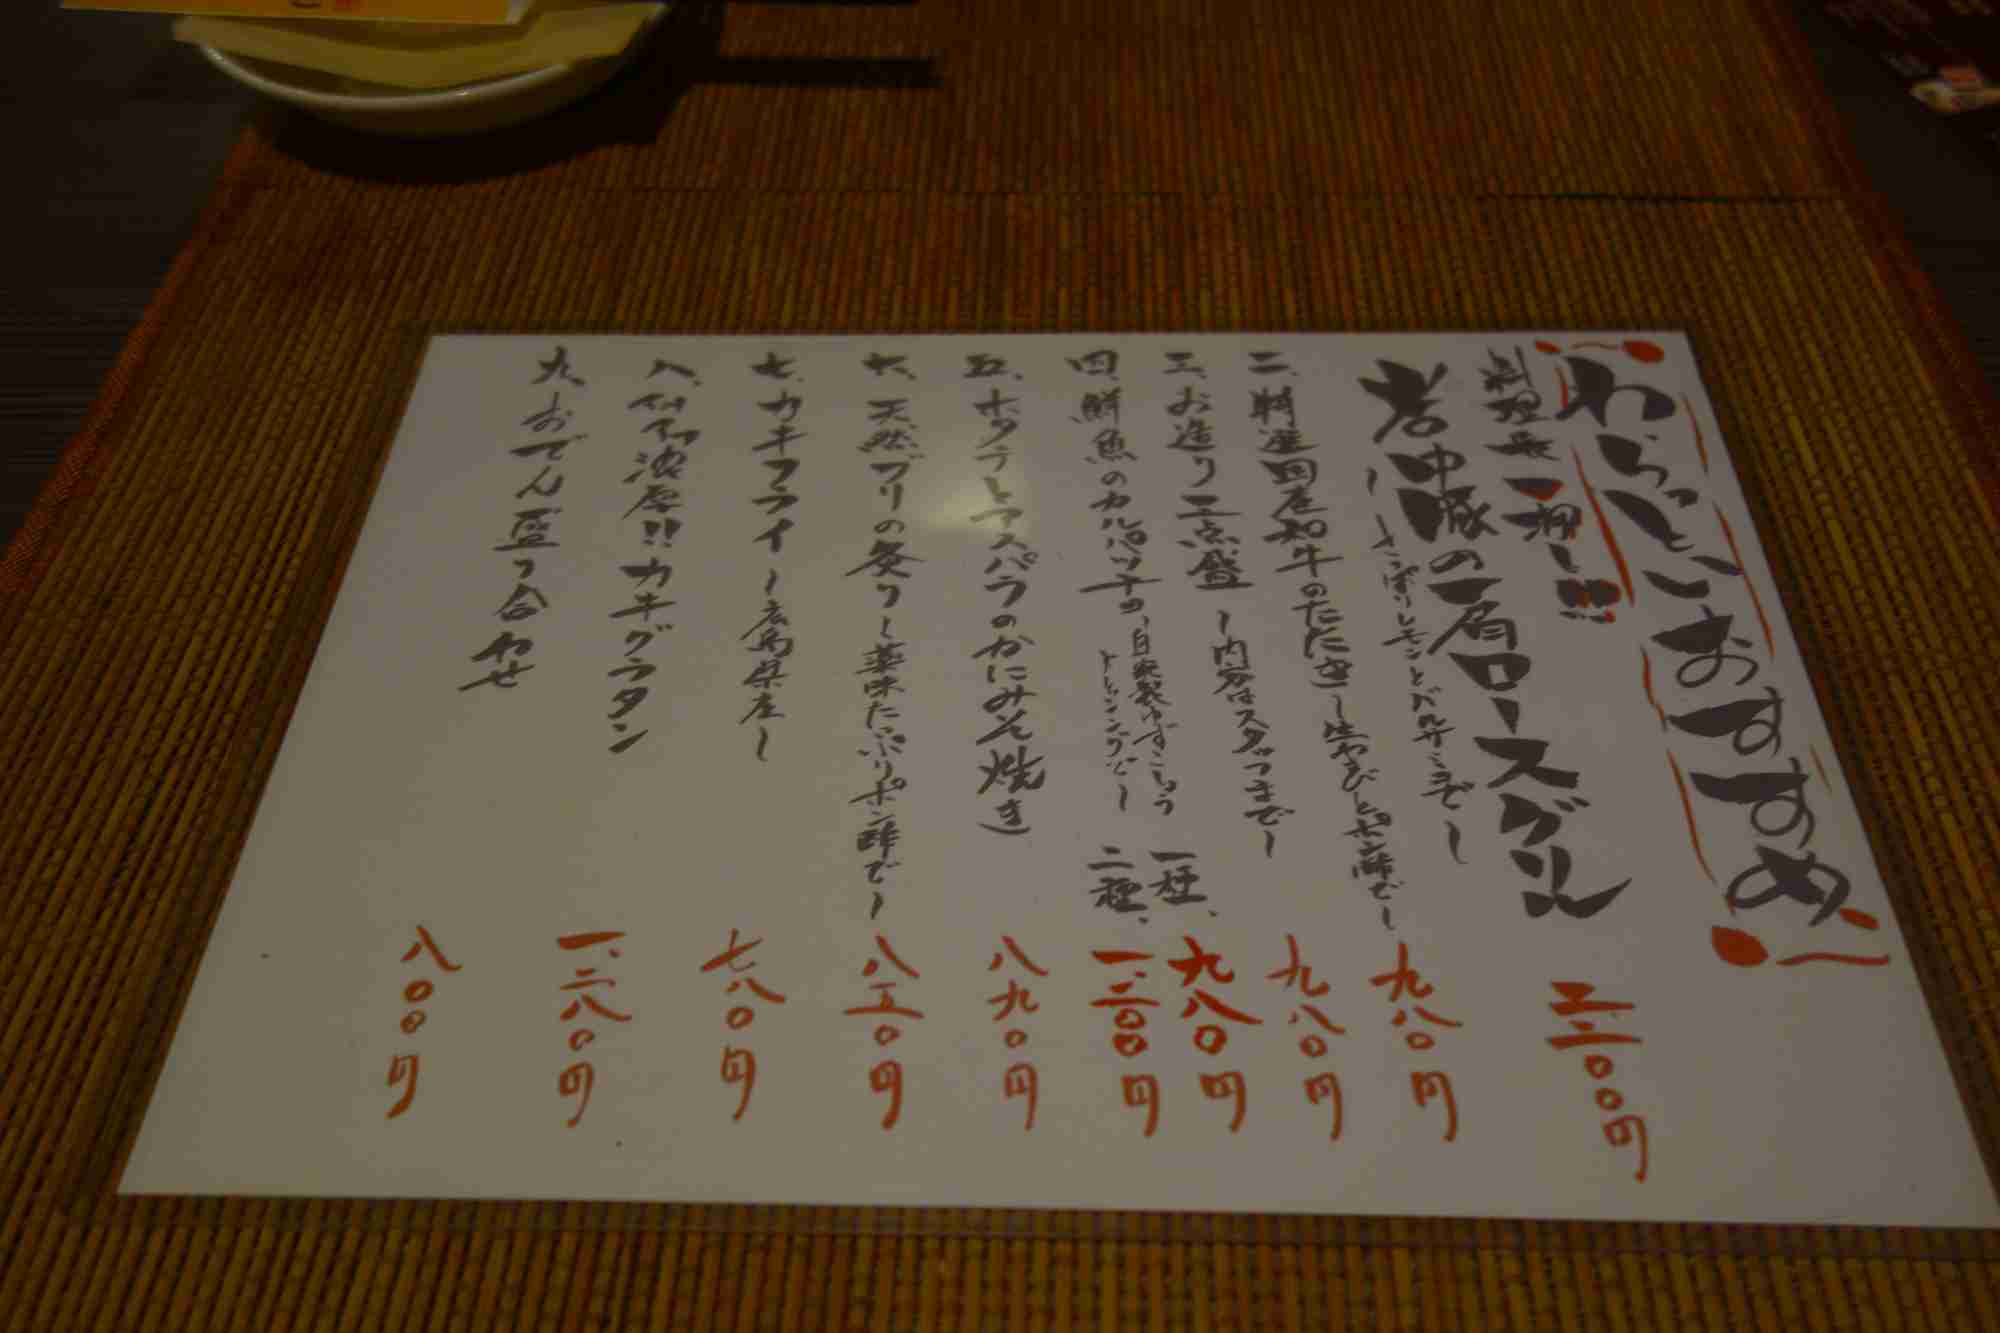 わらっといおすすめ
料理長一押し!!!
岩中豚の肩ロースグリル
~さっぱりレモンとバルサミコで~
二、特選国産和牛のたたき~生わさびとポン酢で~
九八〇円
三、お造り三点盛~内容はスタッフまで~
九八〇円
四、鮮魚のカルパッチョ、自家製ゆずこしょう
ドレッシングで~
一種、九八〇円
二種、
五、ホタテとアスパラのかにみそ焼き
八九〇円
六、天然ブリの炙り~薬味たっぷりポン酢で~
八五〇円
七、カキフライ~広島県産~
七八〇円
八、熱々濃厚!!カキグラタン
一、二八〇円
九、おでん盛り合わせ
八〇〇円